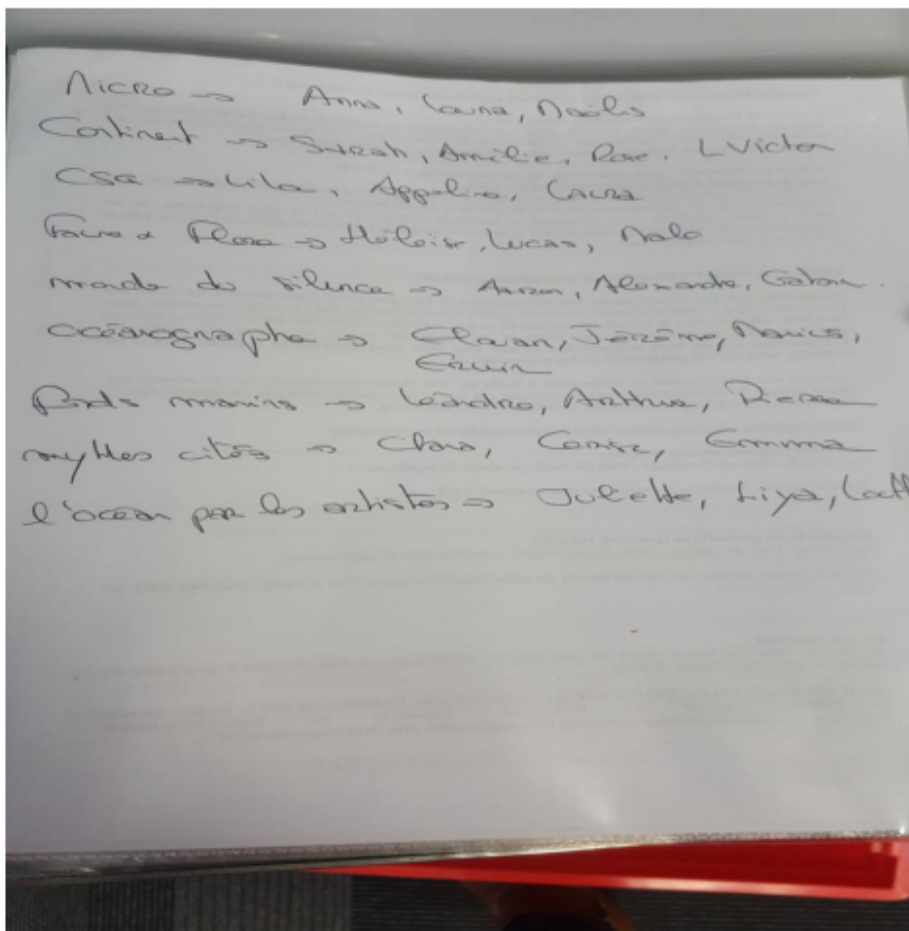 Micro → Anna, Louna, Maëlis
Continent → Sarah, Amélie, Rose, L Victor
→ Lila, Appoline, Laura
Faune & Flore → Héloïse, Lucas, Malo
monde du silence → Alexandre, Gatan.
océanographe → Jérôme, Marius,
Erwin
fonds marins → Léandro, Arthur,
mythes cités → Clara, Emma
l'océan par les artistes → Juliette, Liya,